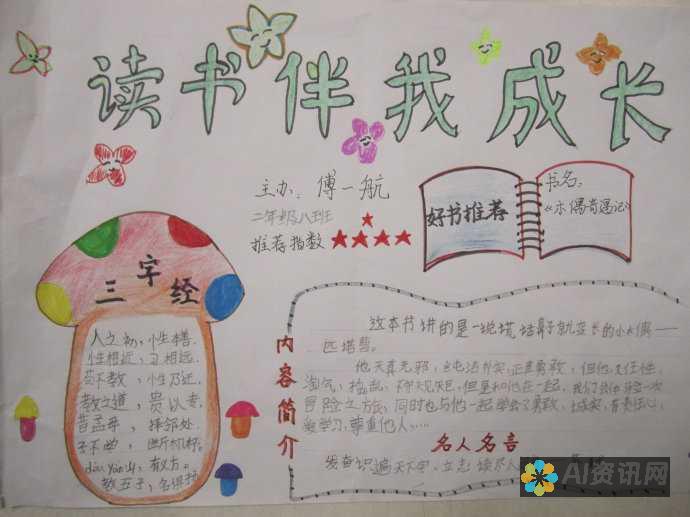 读书伴我成长
主办：傅一航
二年级八班
推荐指数
好书推荐
书名：
《木偶奇遇记》
三字经
人之初，性本善.
性相近，习相远.
苟不教，性乃迁.
教之道，贵以专.
昔孟母，择邻处.
子不学，断机杼.
dòu yān shān，有义方。
教五子，名俱扬
内容简介
这本书讲的是一说谎，鼻子就变长的小木偶——
匹诺曹。
他天真无邪，
正直勇敢，但他又任性，
淘气，捣乱，
但是和他在一起，我们会体验一次
冒险之旅，同时也与他一起学会了勇敢，诚实，有责任心，
爱学习，尊重他人……
名人名言
发奋识遍天下字，立志读尽人
AI资讯网